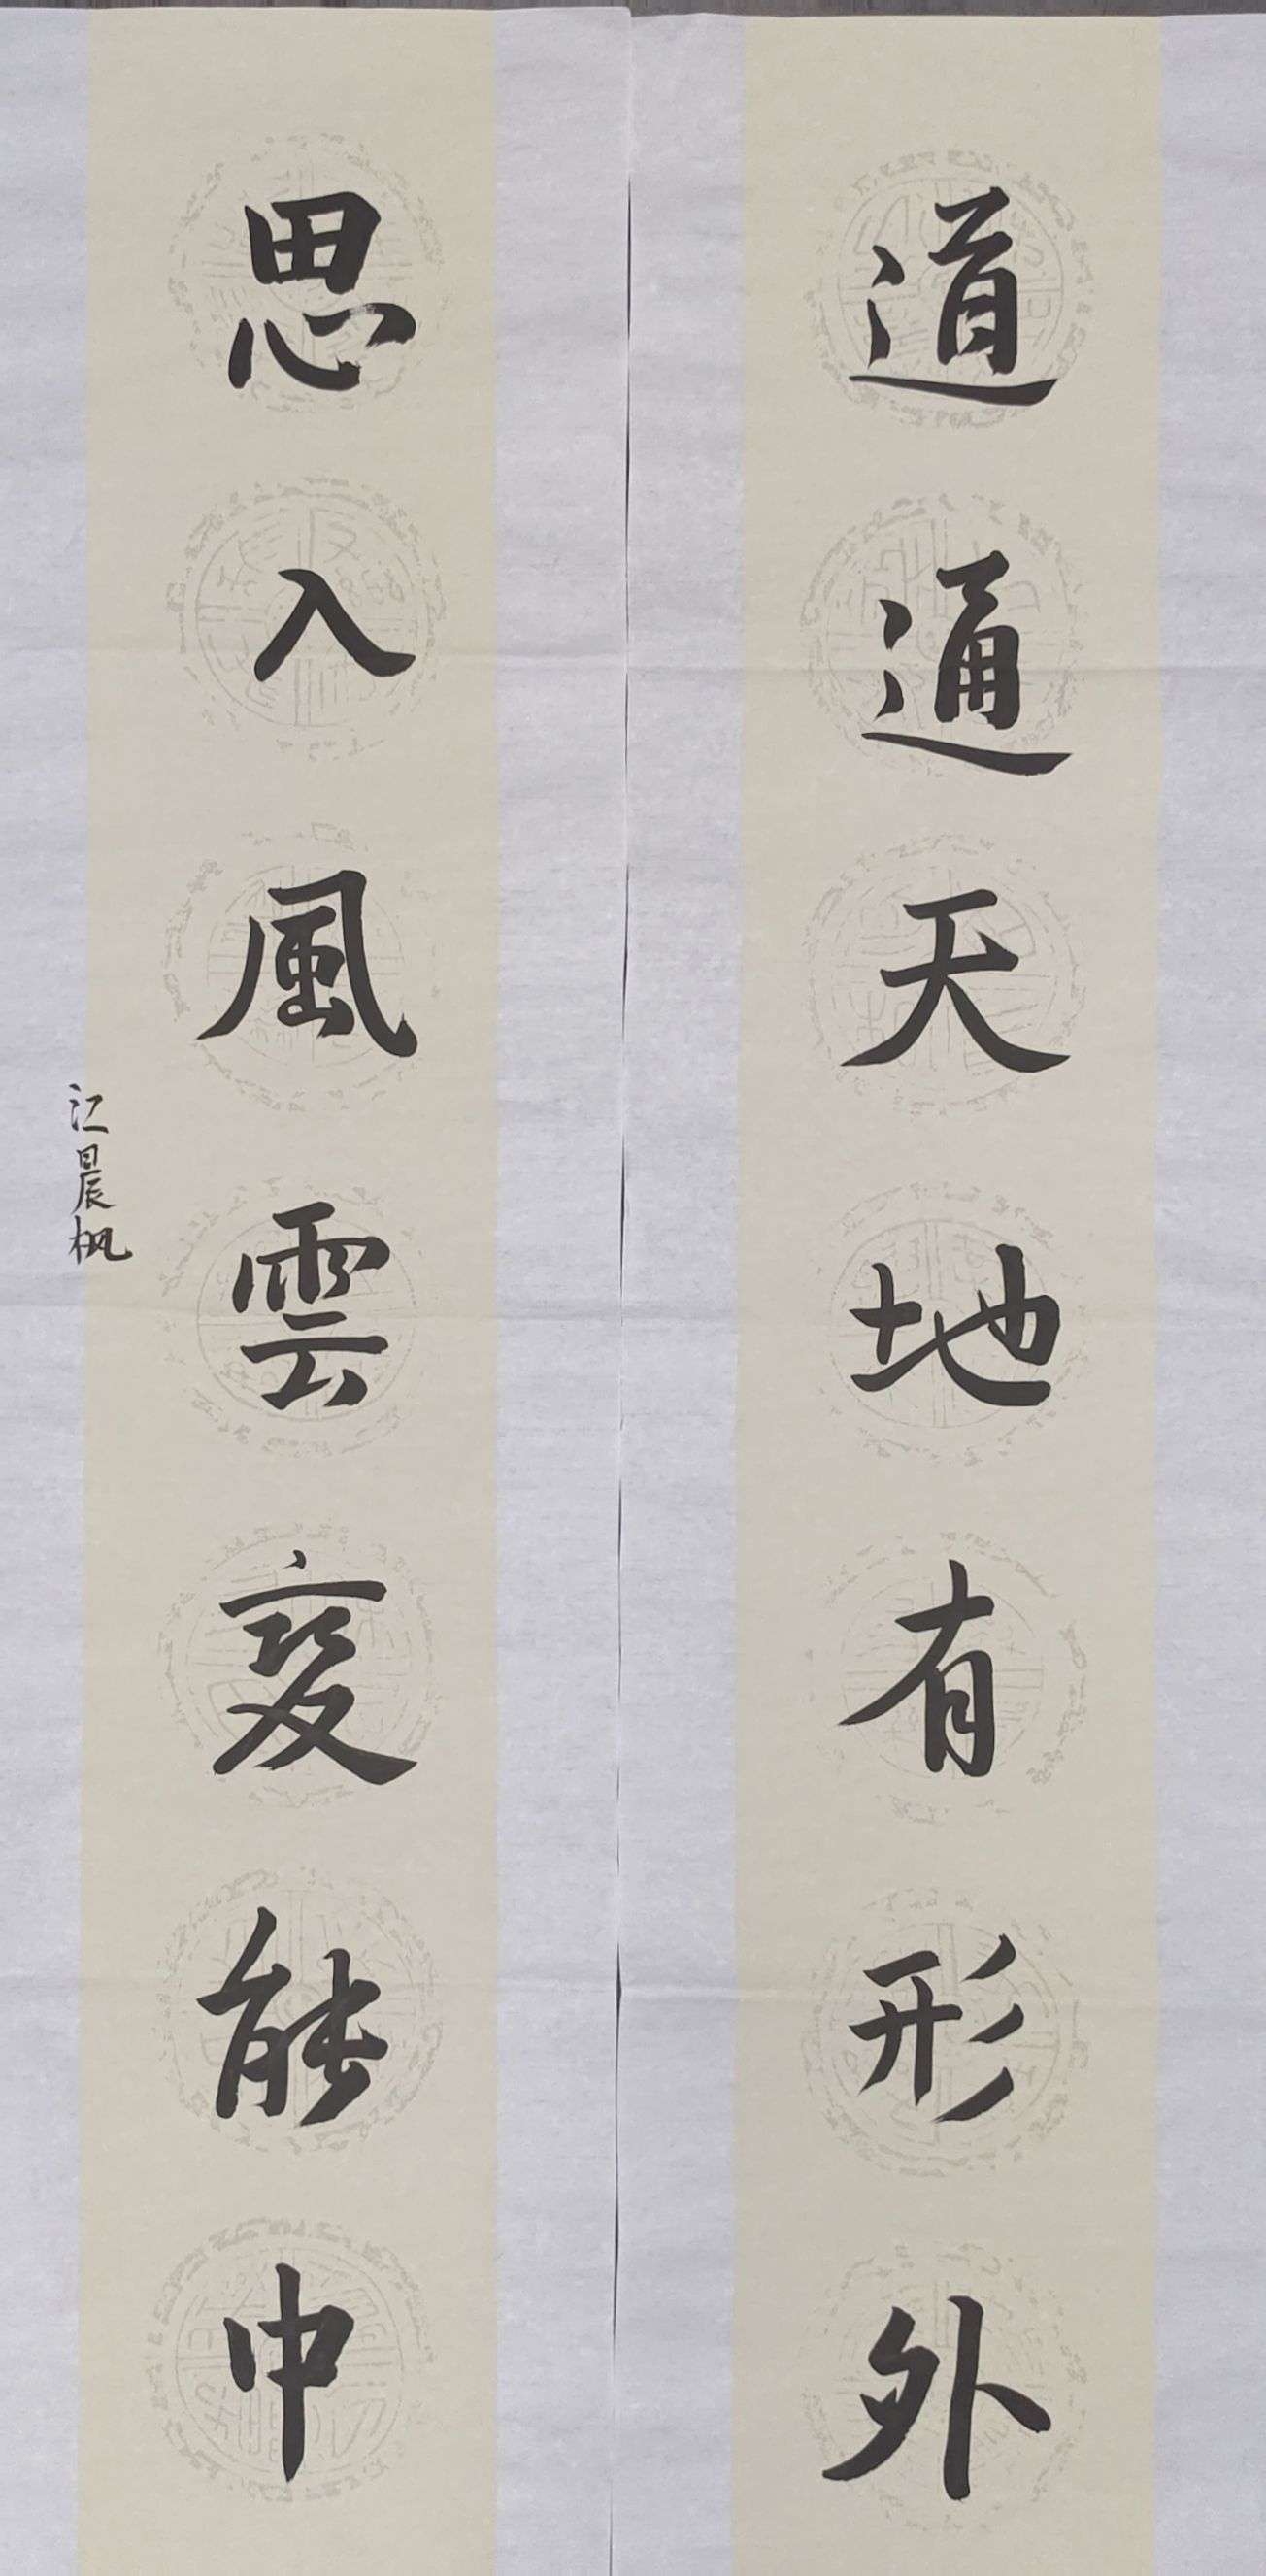 道通天地有形外
思入風雲变能中
江晨枫